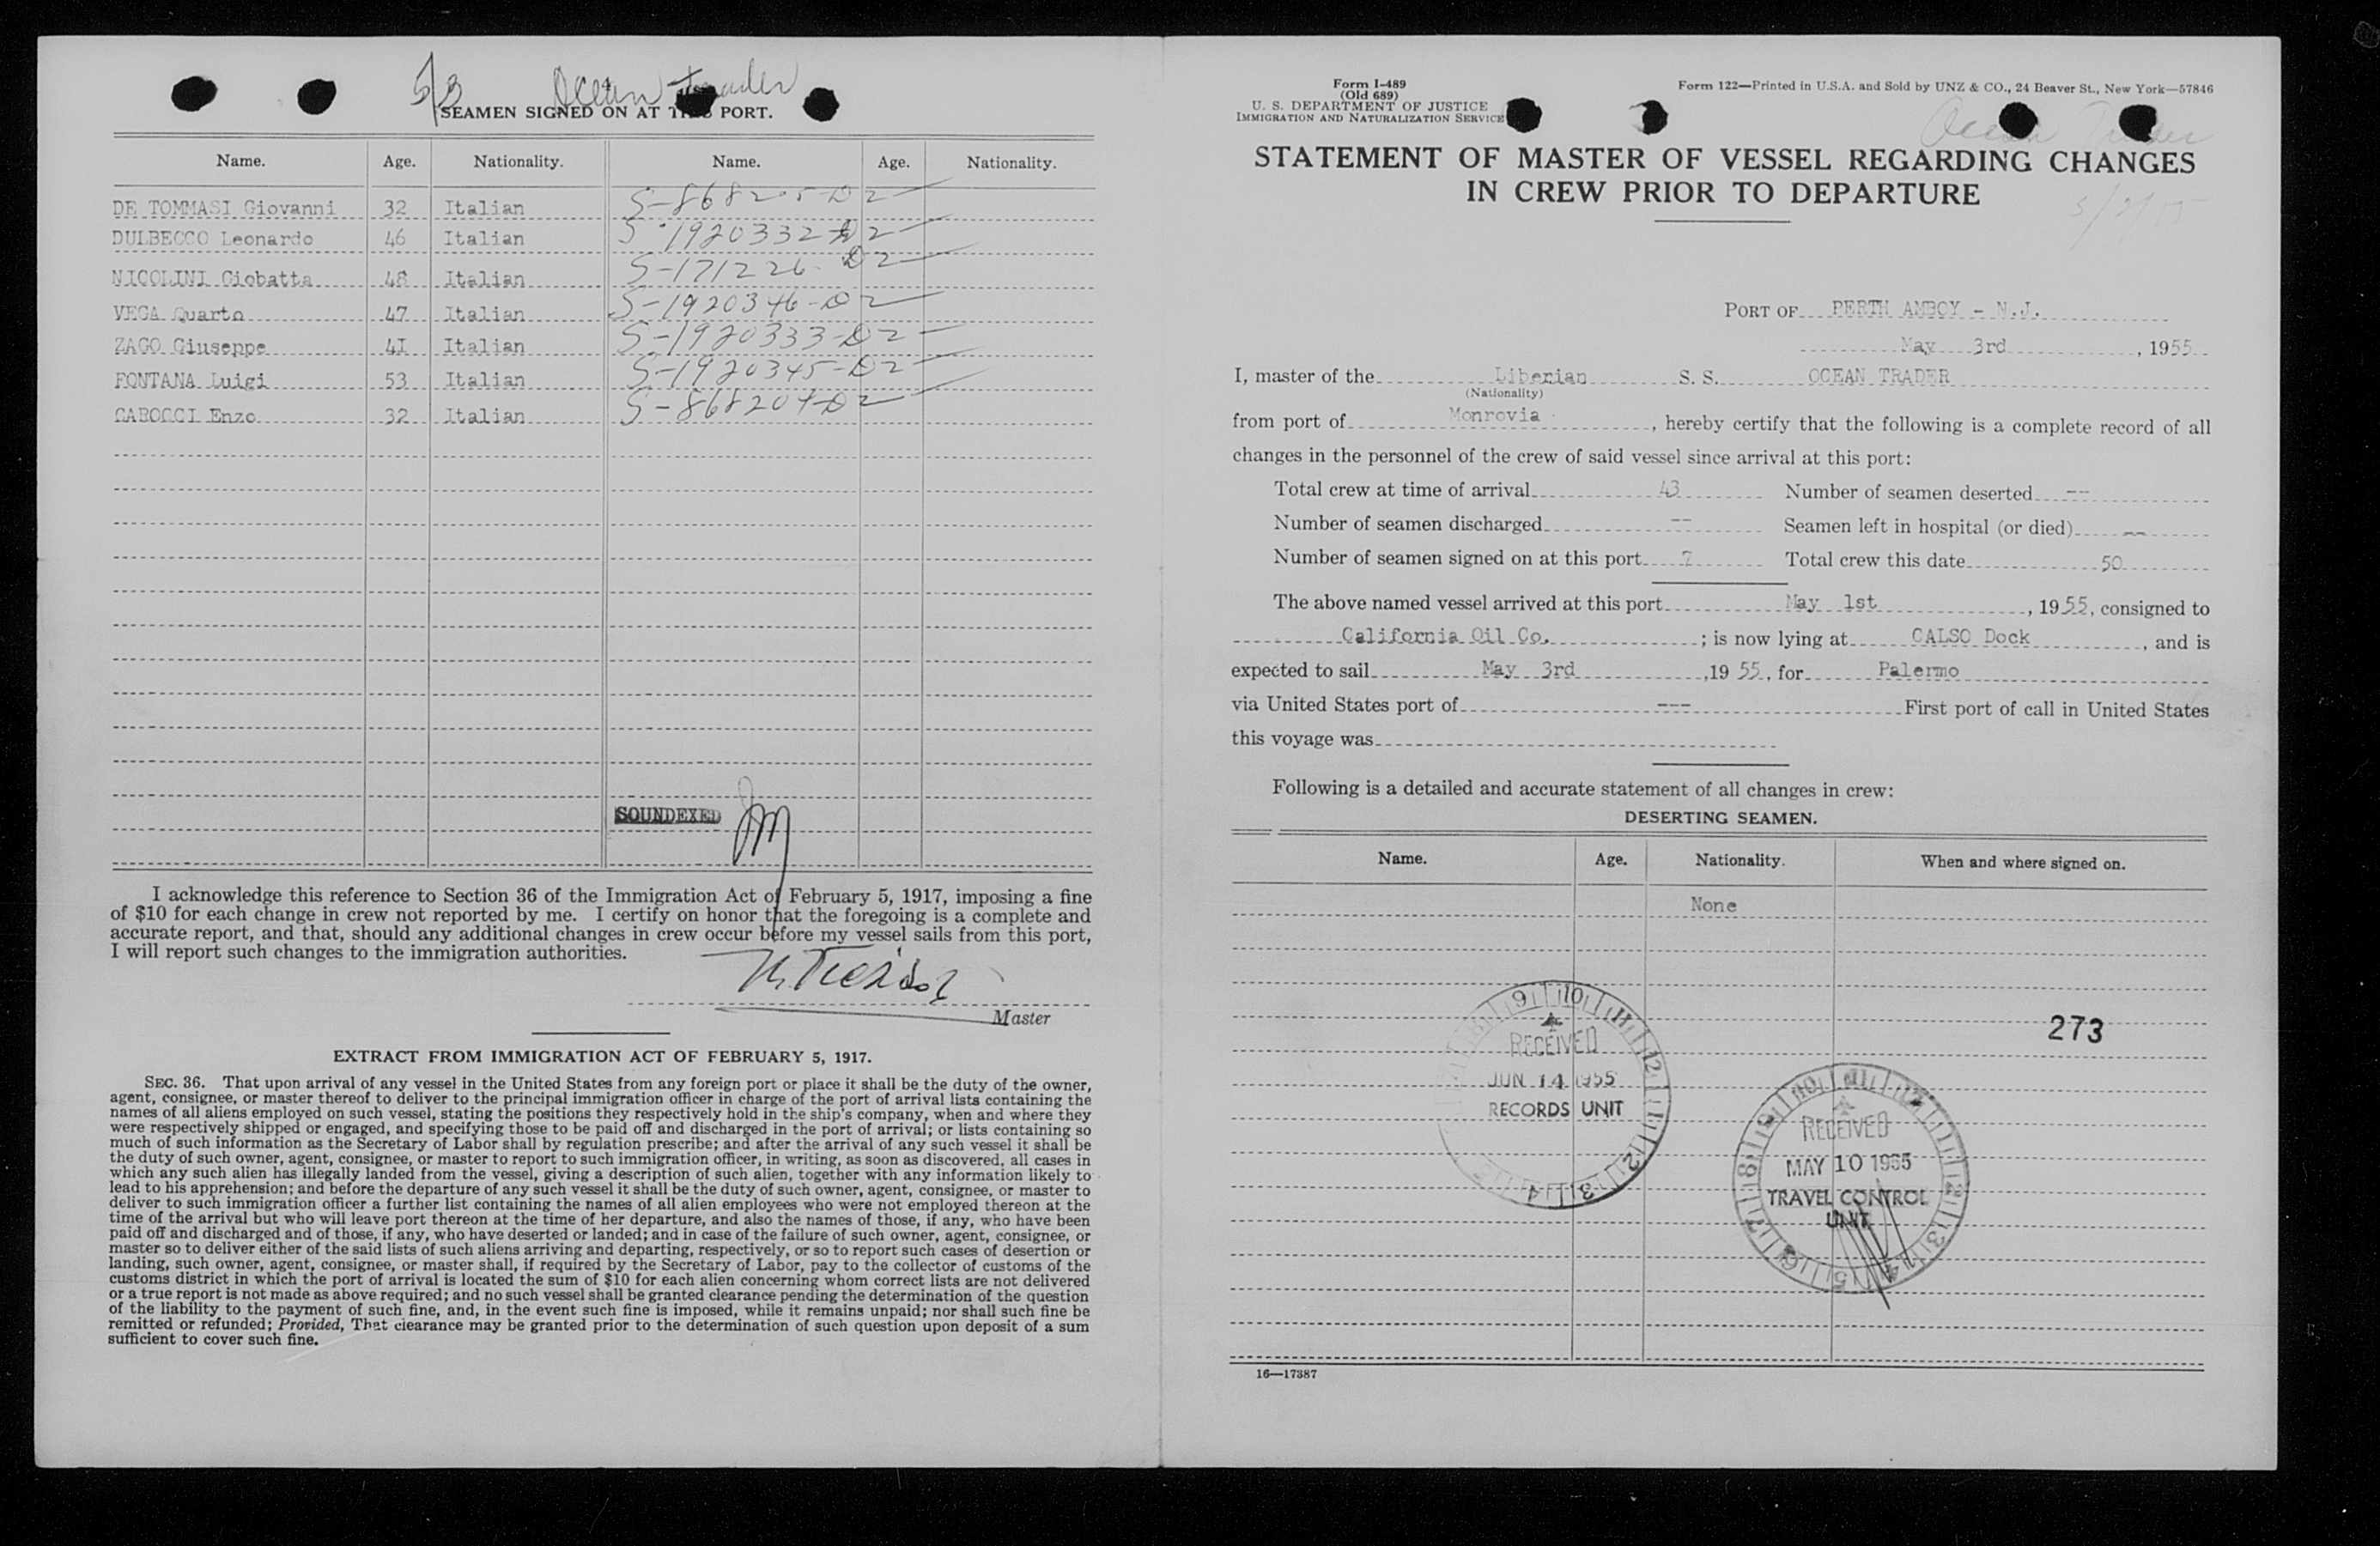 S/S Ocean Trader
SEAMEN SIGNED ON AT THIS PORT.
Name. Age. Nationality. Name. Age. Nationality.
DE TOMMASI Giovanni 32 Italian S-868205-D2
DULBECCO Leonardo 46 Italian S-1920332-D2
NICOLINI Giobatta 48 Italian S-171226-D2
VEGA Quarto 47 Italian S-1920346-D2
ZAGO Giuseppe 41 Italian S-1920333-D2
FONTANA Luigi 53 Italian S-1920345-D2
CAROCCI Enzo 32 Italian S-868204-D2
SOUNDEXED
I acknowledge this reference to Section 36 of the Immigration Act of February 5, 1917, imposing a fine
of $10 for each change in crew not reported by me. I certify on honor that the foregoing is a complete and
accurate report, and that, should any additional changes in crew occur before my vessel sails from this port,
I will report such changes to the immigration authorities.
Master
EXTRACT FROM IMMIGRATION ACT OF FEBRUARY 5, 1917.
SEC. 36. That upon arrival of any vessel in the United States from any foreign port or place it shall be the duty of the owner,
agent, consignee, or master thereof to deliver to the principal immigration officer in charge of the port of arrival lists containing the
names of all aliens employed on such vessel, stating the positions they respectively hold in the ship's company, when and where they
were respectively shipped or engaged, and specifying those to be paid off and discharged in the port of arrival; or lists containing so
much of such information as the Secretary of Labor shall by regulation prescribe; and after the arrival of any such vessel it shall be
the duty of such owner, agent, consignee, or master to report to such immigration officer, in writing, as soon as discovered, all cases in
which any such alien has illegally landed from the vessel, giving a description of such alien, together with any information likely to
lead to his apprehension; and before the departure of any such vessel it shall be the duty of such owner, agent, consignee, or master to
deliver to such immigration officer a further list containing the names of all alien employees who were not employed thereon at the
time of the arrival but who will leave port thereon at the time of her departure, and also the names of those, if any, who have been
paid off and discharged and of those, if any, who have deserted or landed; and in case of the failure of such owner, agent, consignee, or
master so to deliver either of the said lists of such aliens arriving and departing, respectively, or so to report such cases of desertion or
landing, such owner, agent, consignee, or master shall, if required by the Secretary of Labor, pay to the collector of customs of the
customs district in which the port of arrival is located the sum of $10 for each alien concerning whom correct lists are not delivered
or a true report is not made as above required; and no such vessel shall be granted clearance pending the determination of the question
of the liability to the payment of such fine, and, in the event such fine is imposed, while it remains unpaid; nor shall such fine be
remitted or refunded; Provided, That clearance may be granted prior to the determination of such question upon deposit of a sum
sufficient to cover such fine.
Form I-489
(Old 689)
U. S. DEPARTMENT OF JUSTICE
IMMIGRATION AND NATURALIZATION SERVICE
Form 122—Printed in U.S.A. and Sold by UNZ & CO., 24 Beaver St., New York—57846
Ocean Trader
STATEMENT OF MASTER OF VESSEL REGARDING CHANGES
IN CREW PRIOR TO DEPARTURE
PORT OF PERTH AMBOY - N.J.
May 3rd, 1955
I, master of the Liberian S. S. OCEAN TRADER
(Nationality)
from port of Monrovia, hereby certify that the following is a complete record of all
changes in the personnel of the crew of said vessel since arrival at this port:
Total crew at time of arrival 43 Number of seamen deserted --
Number of seamen discharged -- Seamen left in hospital (or died) --
Number of seamen signed on at this port 7 Total crew this date 50
The above named vessel arrived at this port May 1st, 1955, consigned to
California Oil Co. ; is now lying at CALSO Dock, and is
expected to sail May 3rd, 1955, for Palermo
via United States port of --- First port of call in United States
this voyage was
Following is a detailed and accurate statement of all changes in crew:
DESERTING SEAMEN.
Name. Age. Nationality. When and where signed on.
None
273
RECEIVED
JUN 14 1955
RECORDS UNIT
RECEIVED
MAY 10 1955
TRAVEL CONTROL
UNIT
16—17387